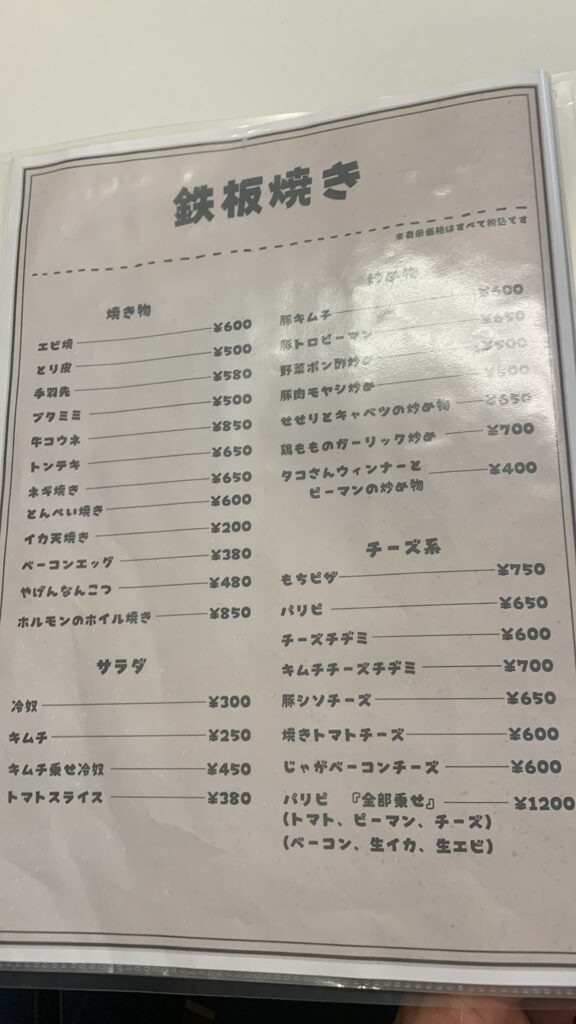 鉄板焼き
※表示価格はすべて税込です
焼き物
エビ焼 ¥600
とり皮 ¥500
手羽先 ¥580
ブタミミ ¥500
牛コウネ ¥850
トンテキ ¥650
ネギ焼き ¥650
とんぺい焼き ¥600
イカ天焼き ¥200
ベーコンエッグ ¥380
やげんなんこつ ¥480
ホルモンのホイル焼き ¥850
サラダ
冷奴 ¥300
キムチ ¥250
キムチ乗せ冷奴 ¥450
トマトスライス ¥380
炒め物
豚キムチ
豚トロピーマン ¥650
野菜ポン酢炒め ¥500
豚肉モヤシ炒め
せせりとキャベツの炒め物 ¥650
鶏もものガーリック炒め ¥700
タコさんウィンナーと ¥400
ピーマンの炒め物
チーズ系
もちピザ ¥750
パリピ ¥650
チーズチヂミ ¥600
キムチチーズチヂミ ¥700
豚シソチーズ ¥650
焼きトマトチーズ ¥600
じゃがベーコンチーズ ¥600
パリピ 『全部乗せ』 ¥1200
(トマト、ピーマン、チーズ)
(ベーコン、生イカ、生エビ)